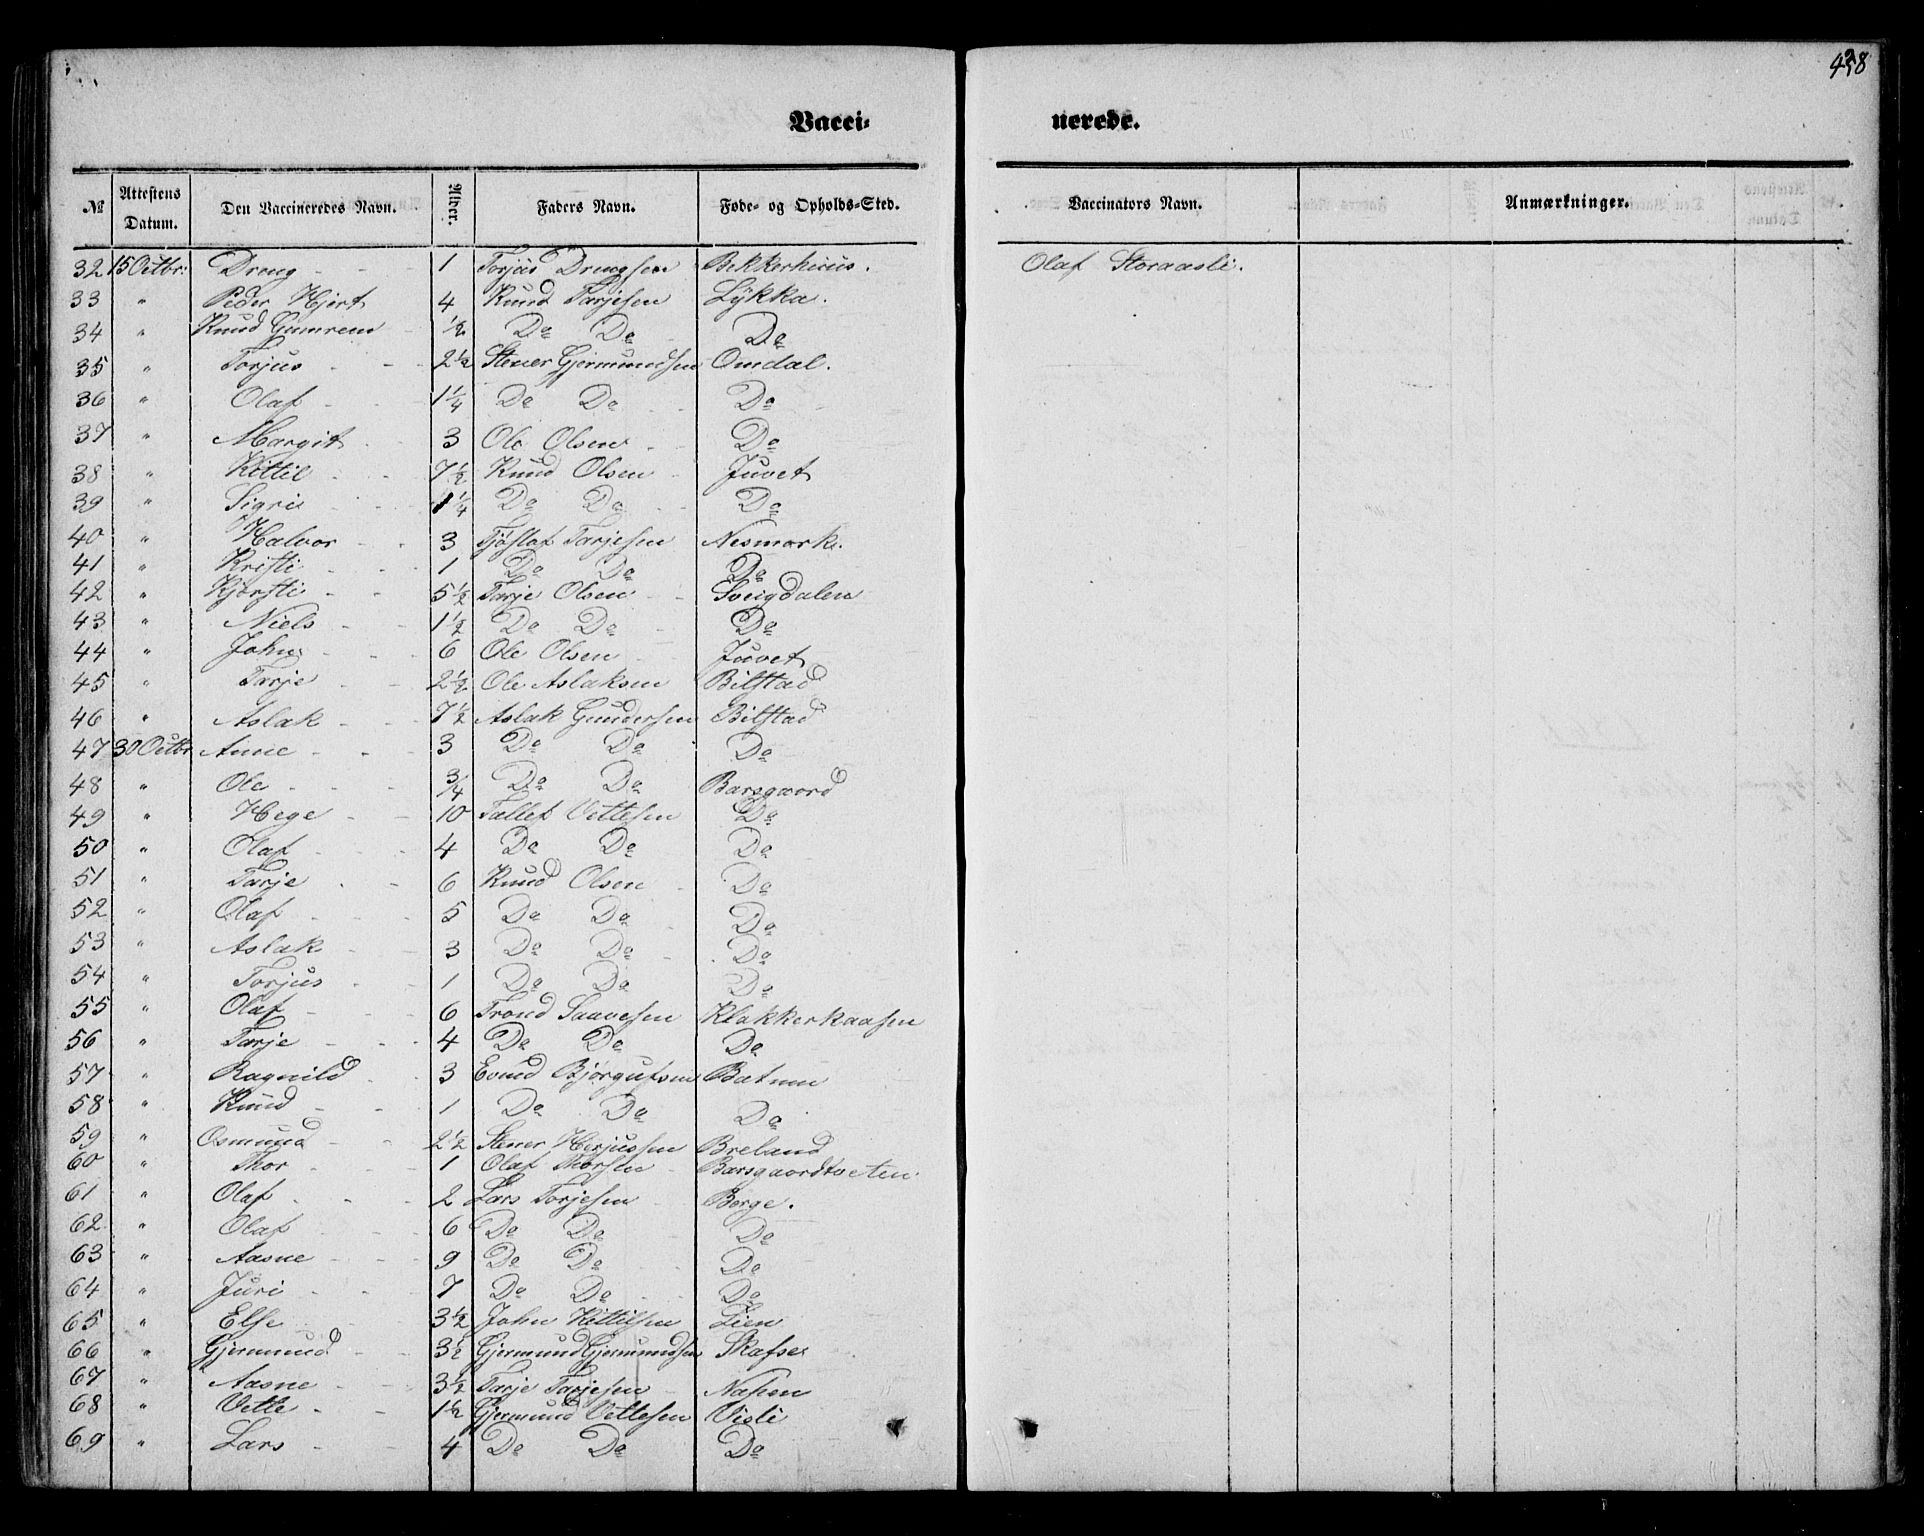 458
Vacci- nerede.
№ Attestens Datum. Den Vaccineredes Navn. Alder. Faders Navn. Føde- og Opholds-Sted. Vaccinators Navn. Anmærkninger.
32 15 Octbr: Dreng 1 Torjus Drengsen Bekkerhuus. Olaf Storaasli.
33 " Peder Hjort 4 Knud Tarjesen Lykka.
34 " Knud 1/2 Do Do Do
35 " Torjus 2 1/2 Stener Gjermundsen Omdal.
36 " Olaf 1 1/4 Do Do Do
37 " Margit 3 Ole Olsen Do
38 " Kittil 7 1/2 Knud Olsen Juvet
39 " Sigri 1 1/4 Do Do Do
40 " Halvor 3 Tjøstof Tarjesen Nesmork.
41 " Kristi 1 Do Do Do
42 " Kjørsti 5 1/2 Tarje Olsen Sveigdalen
43 " Niels 1 1/2 Do Do Do
44 " John 6 Ole Olsen Juvet
45 " Tarje 2 1/2 Ole Aslaksen Bilstad
46 " Aslak 7 1/2 Aslak Gundersen Bilstad
47 30 Octbr Anne 3 Do Do Do
48 " Ole 3/4 Do Do Barsgaard
49 " Hege 10 Tallef Vetlesen Do
50 " Olaf 4 Do Do Do
51 " Tarje 6 Knud Olsen Do
52 " Olaf 5 Do Do Do
53 " Aslak 3 Do Do Do
54 " Torjus 1 Do Do Do
55 " Olaf 6 Trond Saavesen Klakkerkaasen
56 " Tarje 4 Do Do Do
57 " Ragnild 3 Evind Bjørgufsen Batnen
58 " Knud 1 Do Do Do
59 " Osmund 2 1/2 Stener Herjussen Breland
60 " Thor 1 Olaf Thorsen Barsgaardtveten
61 " Olaf 2 Lars Torjesen Berge.
62 " Olaf 6 Do Do Do
63 " Aasne 9 Do Do Do
64 " Juri 7 Do Do Do
65 " Else 3 1/2 John Kittilsen Lien
66 " Gjermund 3 1/2 Gjermund Gjermundsen Skafse
67 " Aasne 3 1/2 Tarje Tarjesen Nasen
68 " Vetle 1 1/2 Gjermund Vetlesen Visli
69 " Lars 4 Do Do Do